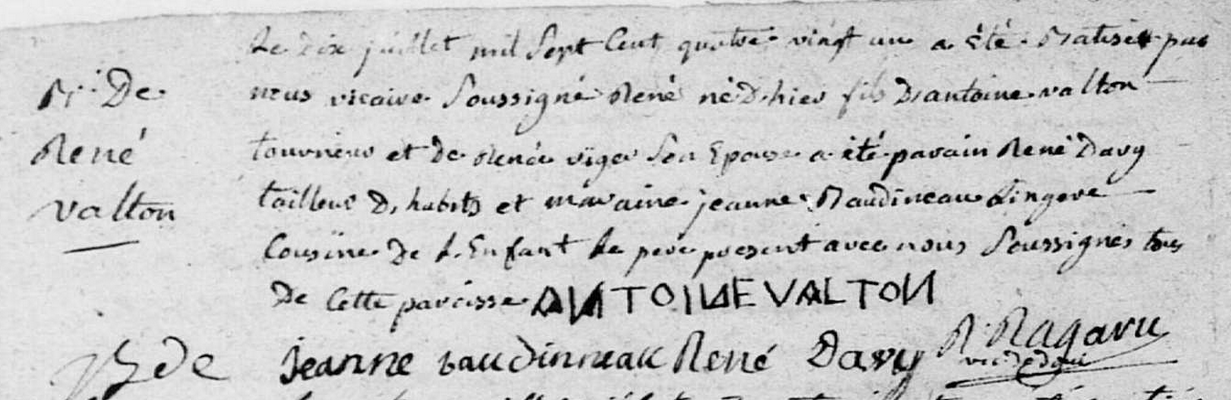 B. De
René
valton
Le dix juillet mil sept cent quatre vingt un a été Batisé par
nous vicaire soussigné René né d'hier fils D'antoine valton
tourneur et de Renée viger son Epouse a été parain René Davy
tailleur D'habits et maraine jeanne Baudineau Lingere
Cousine de L'Enfant Le pere present avec nous soussignés tous
de cette paroisse ANTOINE VALTON
jeanne baudinneau René Davy R. Ragaru
B de